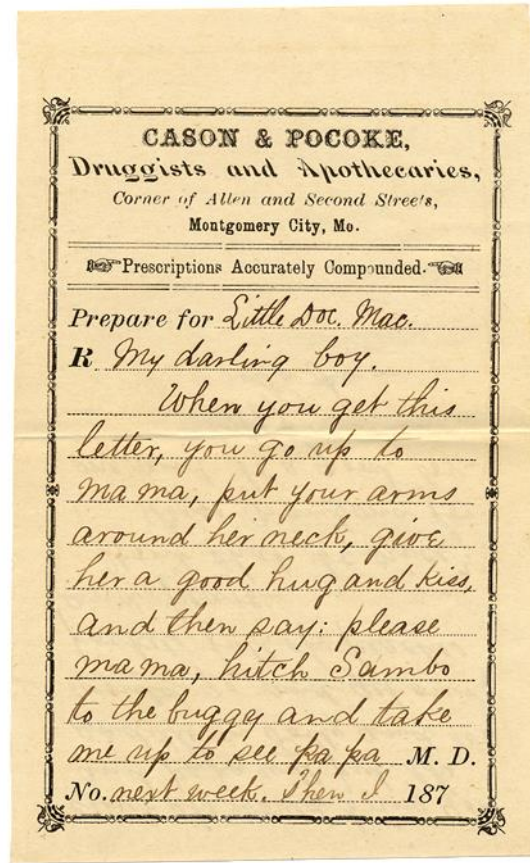 CASON & POCOKE,
Druggists and Apothecaries,
Corner of Allen and Second Streets,
Montgomery City, Mo.
Prescriptions Accurately Compounded.
Prepare for Little Doc. Mac.
R My darling boy.
When you get this
letter, you go up to
ma ma, put your arms
around her neck, give
her a good hug and kiss,
and then say: please
ma ma, hitch Sambo
to the buggy and take
me up to see pa pa M. D.
No. next week. Then I 187